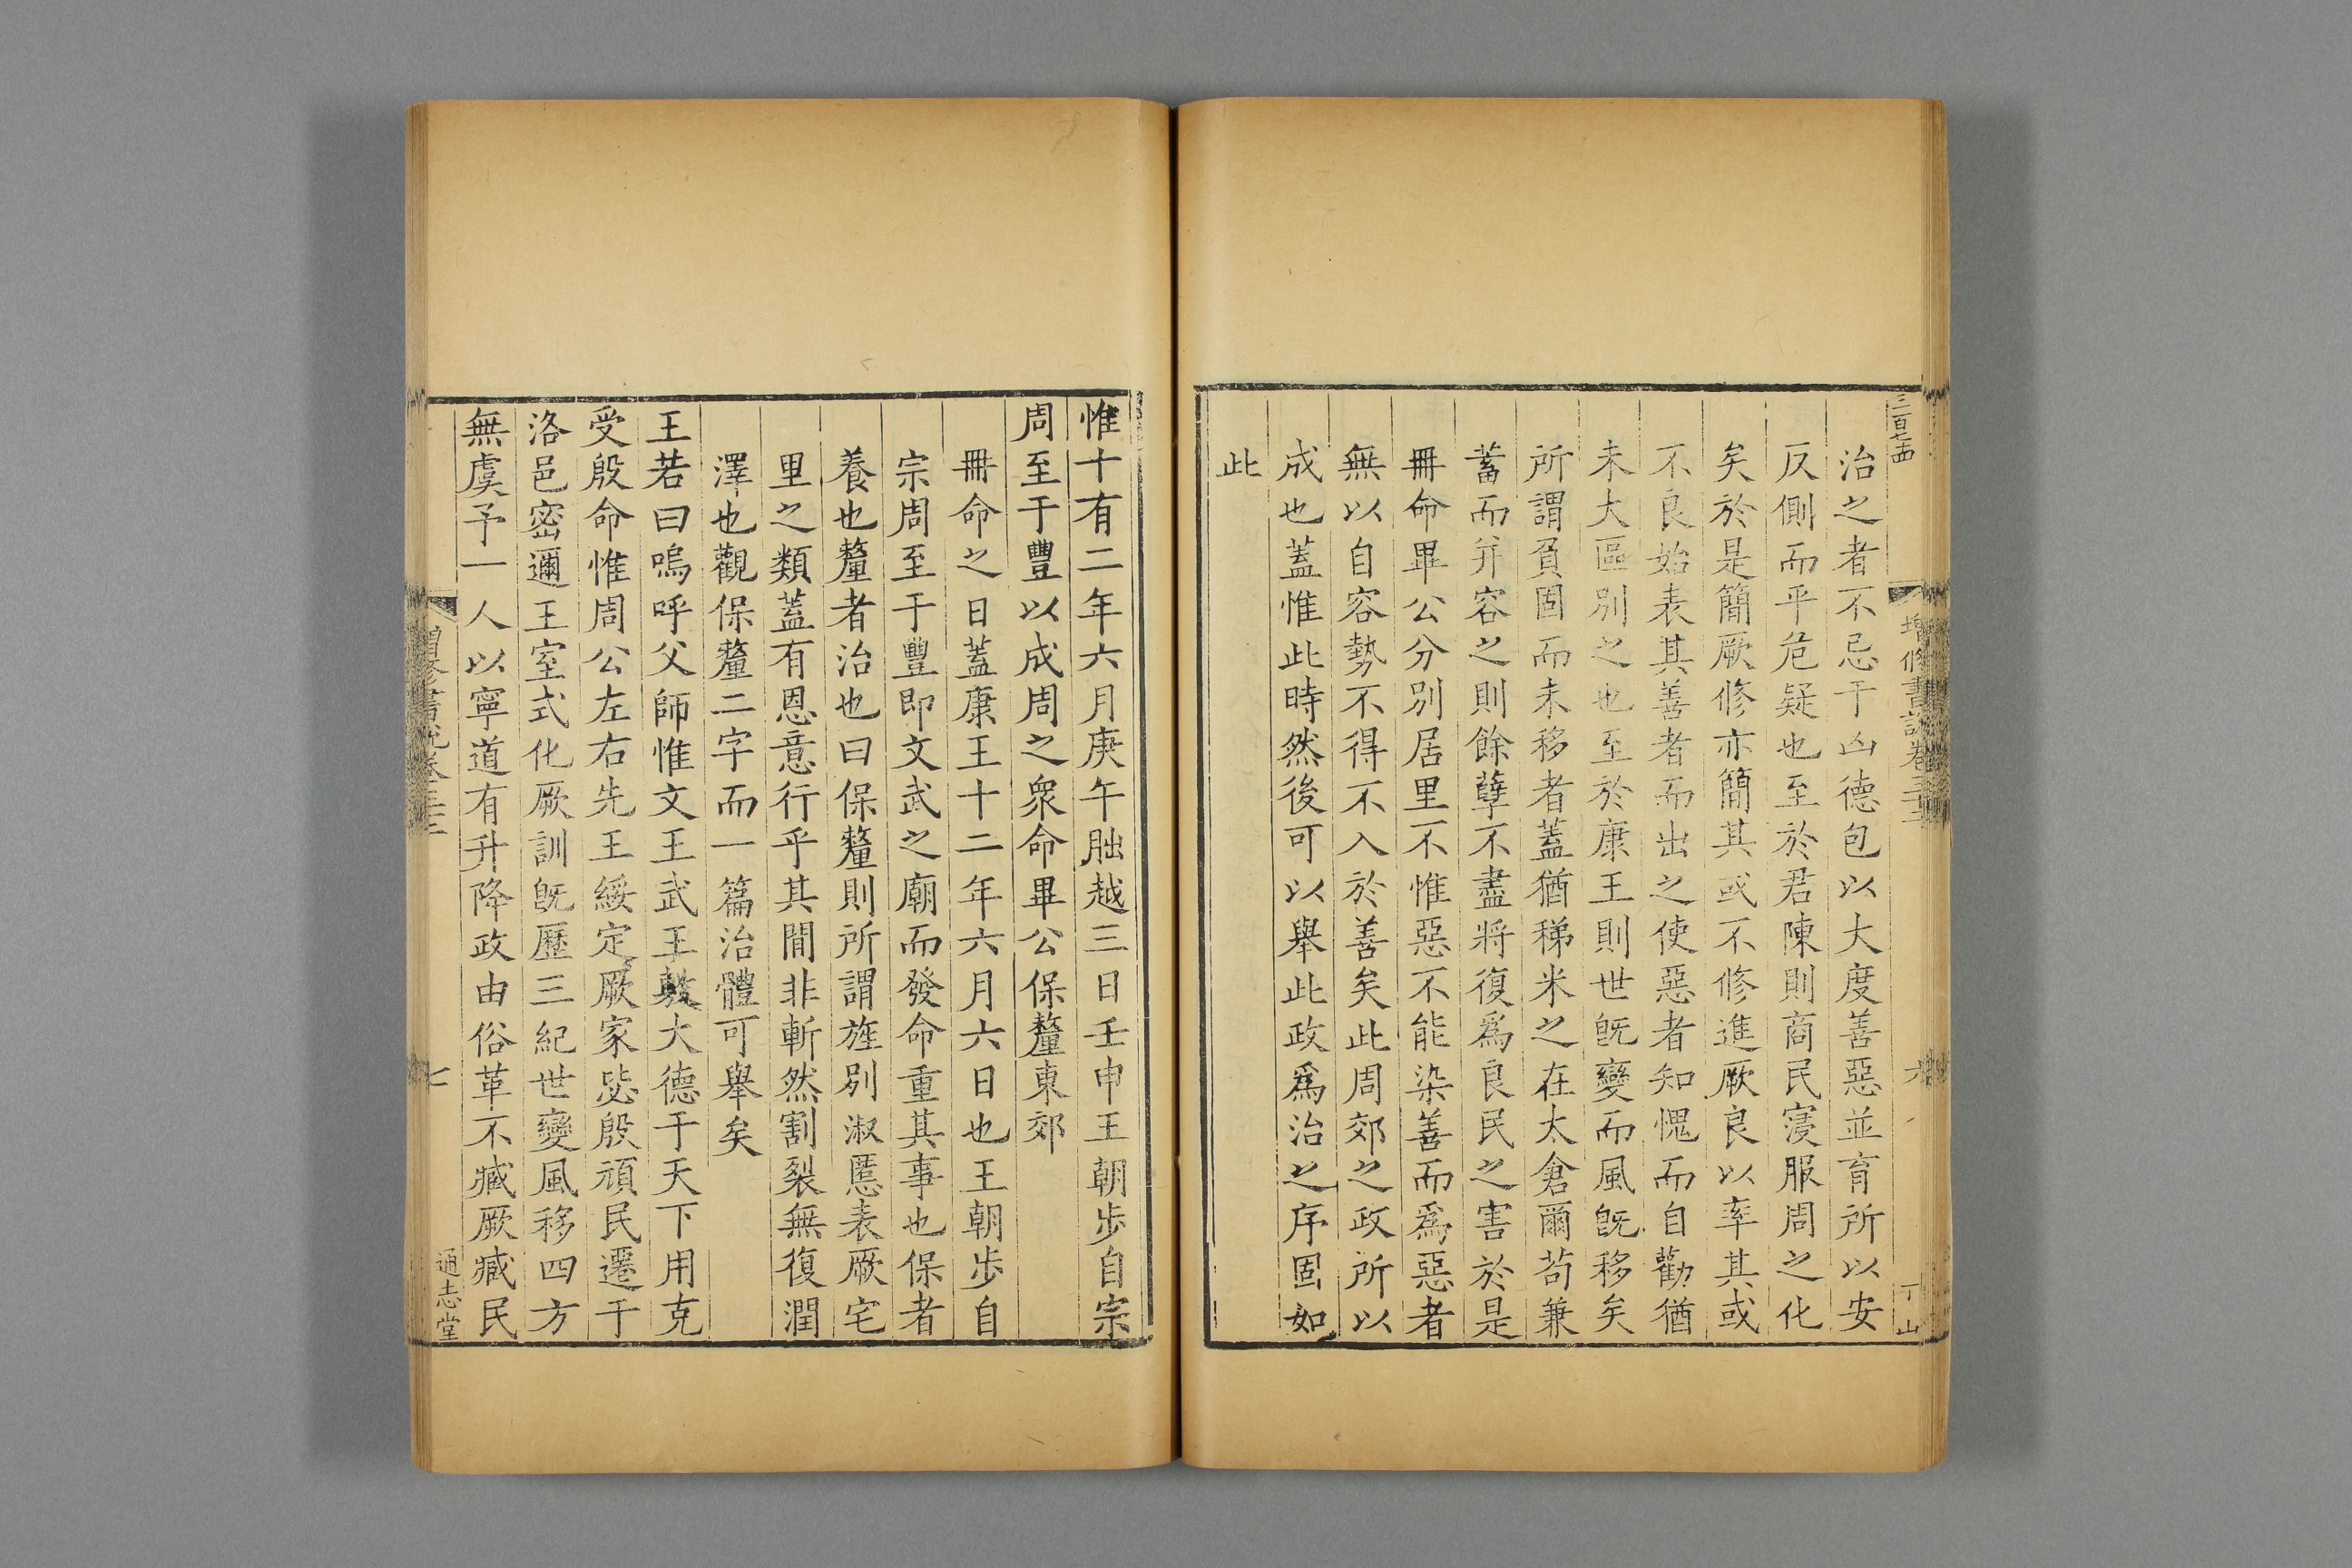 三百七十四
增修書說卷三十三
六
治之者不忌于凶德包以大度善惡並育所以安
反側而平危疑也至於君陳則商民寖服周之化
矣於是簡厥修亦簡其或不修進厥良以率其或
不良始表其善者而出之使惡者知愧而自勸猶
未大區別之也至於康王則世旣變而風旣移矣
所謂負固而未移者蓋猶稊米之在太倉爾苟兼
蓄而并容之則餘孽不盡將復爲良民之害於是
冊命畢公分別居里不惟惡不能染善而爲惡者
無以自容勢不得不入於善矣此周郊之政所以
成也蓋惟此時然後可以舉此政爲治之序固如
此
惟十有二年六月庚午朏越三日壬申王朝步自宗
周至于豐以成周之衆命畢公保釐東郊
冊命之日蓋康王十二年六月六日也王朝步自
宗周至于豐即文武之廟而發命重其事也保者
養也釐者治也曰保釐則所謂旌別淑慝表厥宅
里之類蓋有恩意行乎其間非斬然割裂無復潤
澤也觀保釐二字而一篇治體可舉矣
王若曰嗚呼父師惟文王武王敷大德于天下用克
受殷命惟周公左右先王綏定厥家毖殷頑民遷于
洛邑密邇王室式化厥訓旣歷三紀世變風移四方
無虞予一人以寧道有升降政由俗革不臧厥臧民
增修書說卷三十三
七
通志堂